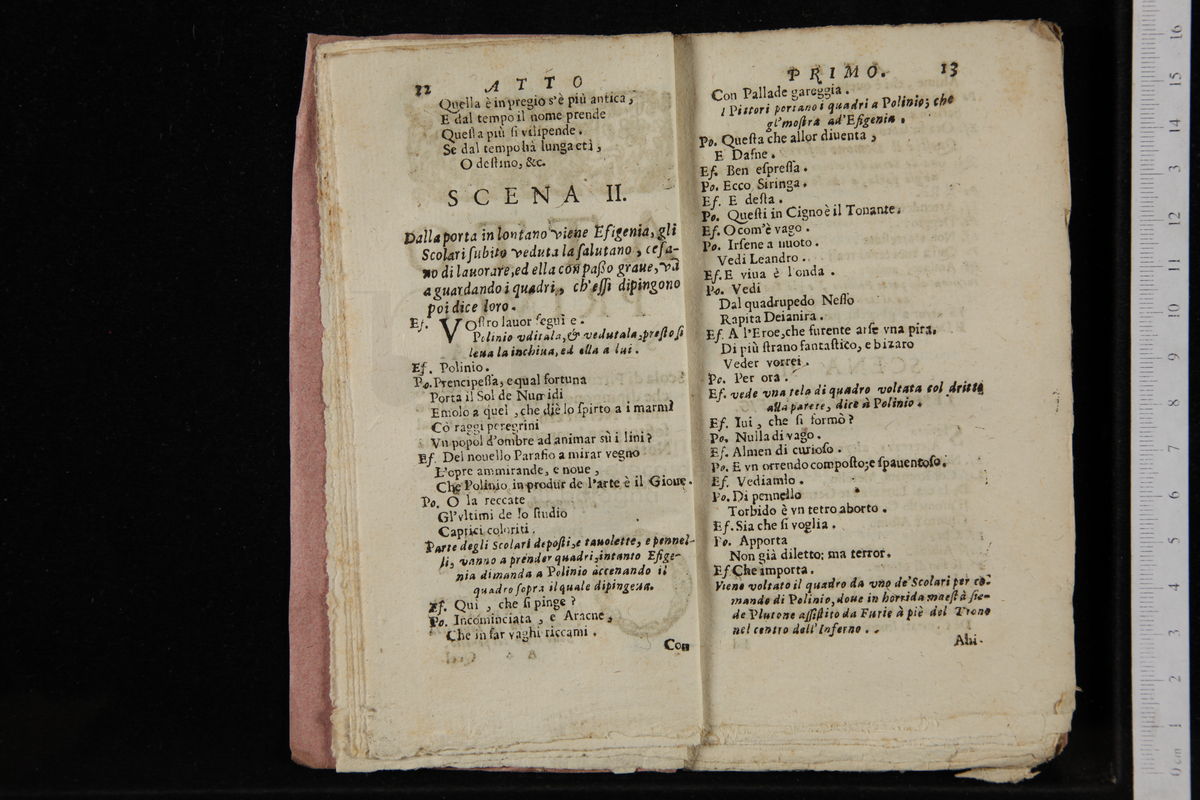 12 ATTO
Quella è in pregio s'è più antica,
E dal tempo il nome prende
Questa più si vilipende.
Se dal tempo hà lunga età,
O destino, &c.
SCENA II.
Dalla porta in lontano viene Efigenia, gli
Scolari subito veduta la salutano, cessa-
no di lauorare, ed ella con passo graue, và
a guardando i quadri, ch'essi dipingono
poi dice loro.
Ef. VOstro lauor segui e.
Polinio vditala, & vedutala, presto si
leua la inchina, ed ella a lui.
Ef. Polinio.
Po. Prencipessa, e qual fortuna
Porta il Sol de Numidi
Emolo a quel, che diè lo spirto a i marmi
Cò raggi peregrini
Vn popol d'ombre ad animar sù i lini?
Ef. Del nouello Parasio a mirar vegno
L'opre ammirande, e noue,
Che Polinio in produr de l'arte è il Gioue.
Po. O la reccate
Gl'vltimi de lo studio
Caprici coloriti.
Parte degli Scolari deposti, e tauolette, e pennel-
li, vanno a prender quadri, intanto Efige-
nia dimanda a Polinio accenando il
quadro sopra il quale dipingeua.
Ef. Qui, che si pinge?
Po. Incominciata, e Aracne,
Che in far vaghi riccami.
Con
PRIMO. 13
Con Pallade gareggia.
I Pittori portano i quadri a Polinio; che
gl'mostra ad'Efigenia.
Po. Questa che allor diuenta,
E Dafne.
Ef. Ben espressa.
Po. Ecco Siringa.
Ef. E desta.
Po. Questi in Cigno è il Tonante.
Ef. O com'è vago.
Po. Irsene a nuoto.
Vedi Leandro.
Ef. E viua è l'onda.
Po. Vedi
Dal quadrupedo Nesso
Rapita Deianira.
Ef. A l'Eroe, che furente arse vna pira.
Di più strano fantastico, e bizaro
Veder vorrei.
Po. Per ora.
Ef. vede vna tela di quadro voltata col dritto
alla parete, dice à Polinio.
Ef. Iui, che si formò?
Po. Nulla di vago.
Ef. Almen di curioso.
Po. E vn orrendo composto; e spauentoso.
Ef. Vediamlo.
Po. Di pennello
Torbido è vn tetro aborto.
Ef. Sia che si voglia.
Po. Apporta
Non già diletto; ma terror.
Ef. Che importa.
Viene voltato il quadro da vno de'Scolari per co-
mando di Polinio, doue in horrida maestà sie-
de Plutone assistito da Furie à piè del Trono
nel centro dell'Inferno.
Ahi.